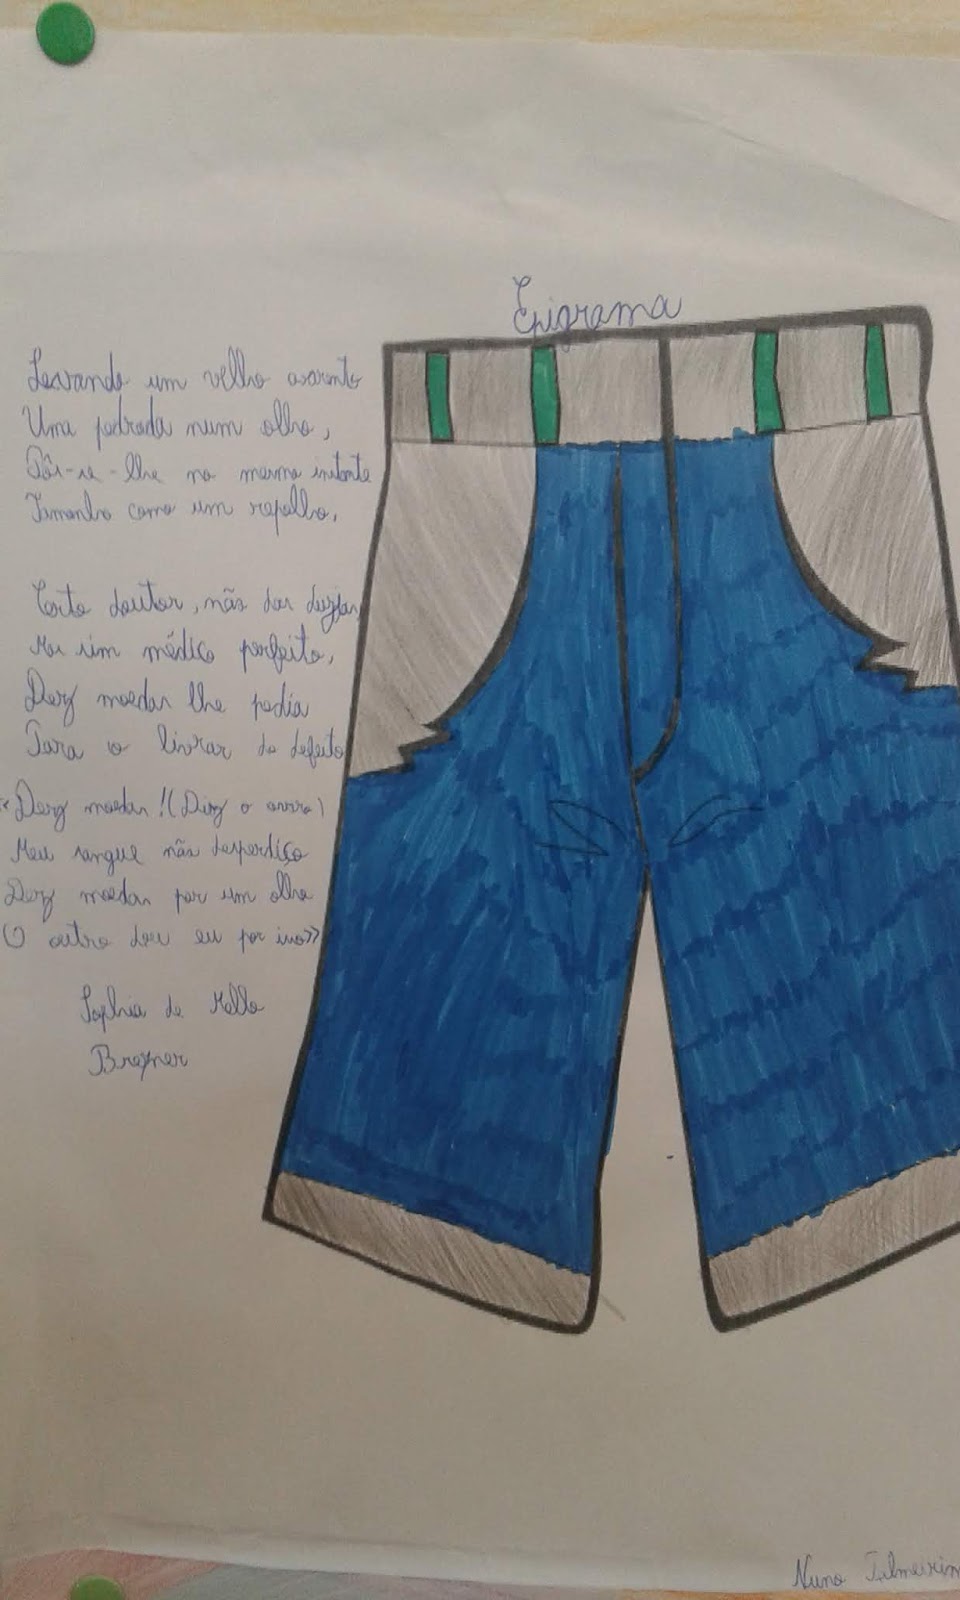 Epigrama
Levando um velho avarento
Uma pedrada num olho,
Pôs-se-lhe no mesmo instante
Tamanho como um repolho.
Certo doutor, não das dúzias,
Mas sim médico perfeito,
Dez moedas lhe pedia
Para o livrar do defeito
«Dez moedas!! (Diz o avaro)
Meu sangue não desperdiço
Dez moedas por um olho
O outro dou eu por isso»
Sophia de Mello
Breyner
Nuno